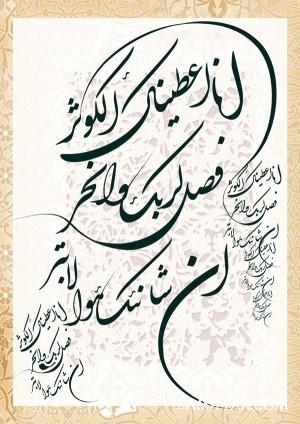 انا اعطیناک الکوثر
فصل لربک وانحر
ان شانئک هوالابتر
انا اعطیناک الکوثر
فصل لربک وانحر
ان شانئک هوالابتر
انا اعطیناک الکوثر
فصل لربک وانحر
ان شانئک هوالابتر